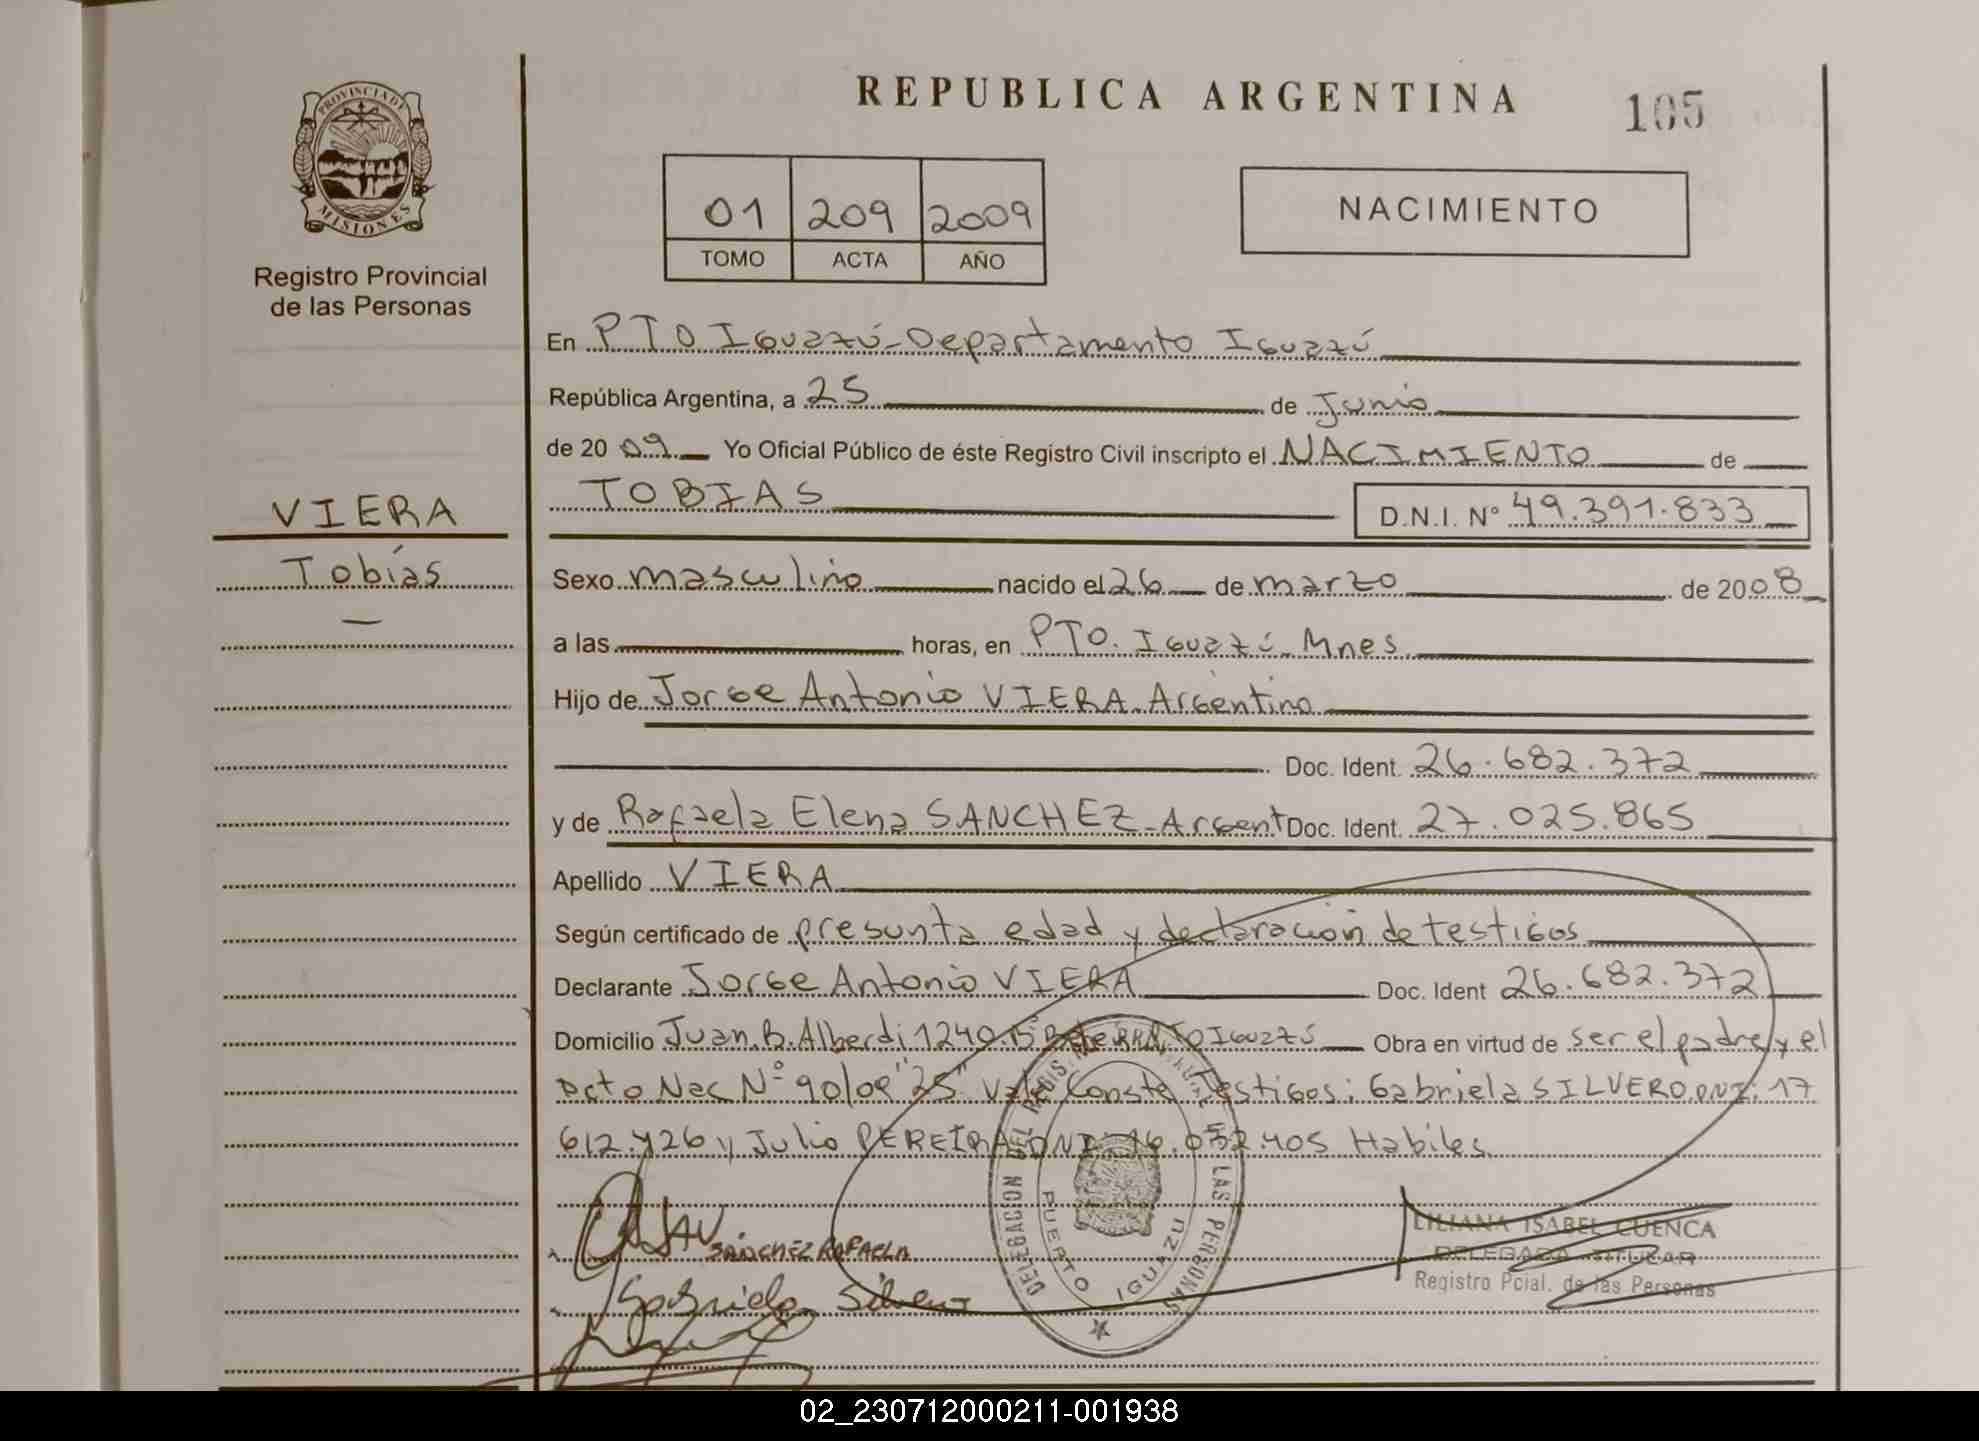 REPUBLICA ARGENTINA
105
PROVINCIA DE
MISIONES
Registro Provincial
de las Personas
01 209 2009
TOMO ACTA AÑO
NACIMIENTO
En PTO Iguazú-Departamento Iguazú
República Argentina, a 25 de Junio
de 20 09 Yo Oficial Público de éste Registro Civil inscripto el NACIMIENTO de
TOBIAS D.N.I. N° 49.391.833
VIERA
Tobías
Sexo masculino nacido el 26 de marzo de 2008
a las horas, en PTO. Iguazú-Mnes
Hijo de Jorge Antonio VIERA-Argentino
Doc. Ident. 26.682.372
y de Rafaela Elena SANCHEZ-Argent Doc. Ident. 27.025.865
Apellido VIERA
Según certificado de presunta edad y declaración de testigos
Declarante Jorge Antonio VIERA Doc. Ident 26.682.372
Domicilio Juan.B.Alberdi 1240. Iguazú Obra en virtud de ser el padre y el
acto Nac N° 90/09 "25" Vale Conste Testigos: Gabriela SILVERO.DNI: 17
612.426 y Julio PEREIRA DNI: 16.032.405 Habiles
SANCHEZ RAFAELA
Gabriela Silvero
DELEGACION DEL REGISTRO LAS PERSONAS
PUERTO IGUAZU
LILIANA ISABEL CUENCA
DELEGADA TITULAR
Registro Pcial. de las Personas
02_230712000211-001938